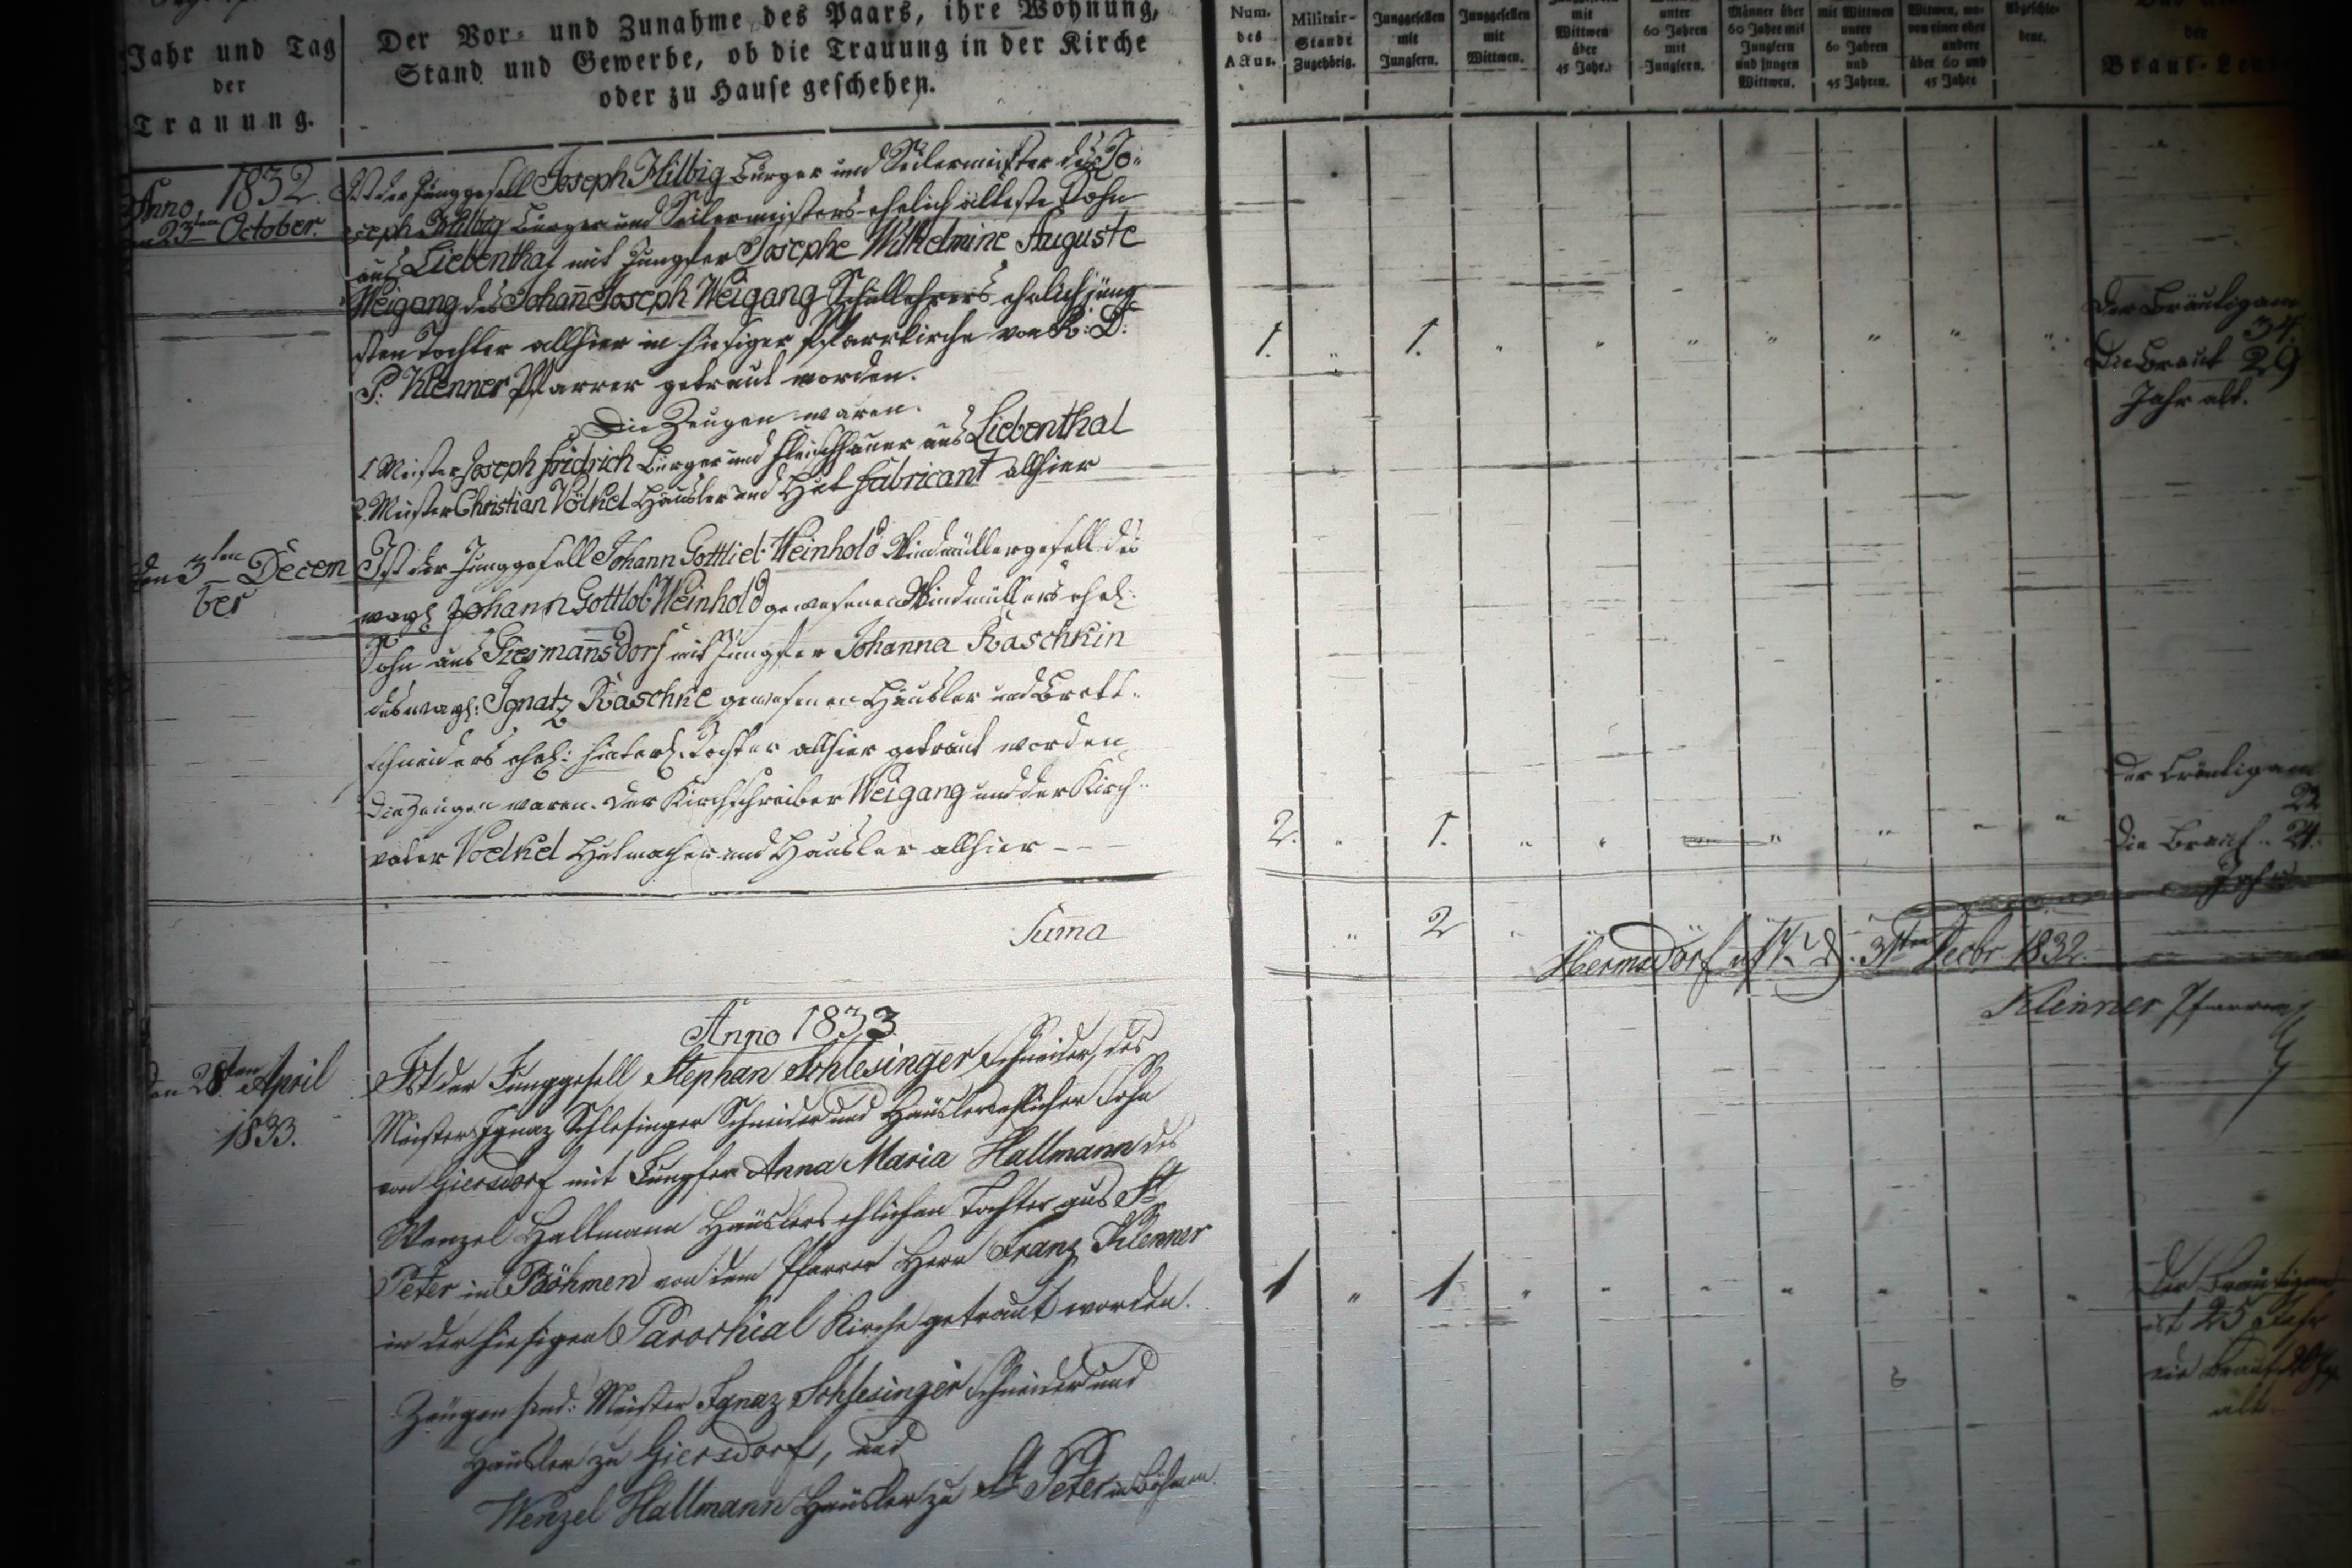 Jahr und Tag
der
Trauung.
Der Vor- und Zunahme des Paars, ihre Wohnung,
Stand und Gewerbe, ob die Trauung in der Kirche
oder zu Hause geschehen.
Num.
des
Actus.
Militair-
Stande
Zugehörig.
Junggesellen
mit
Jungfern.
Junggesellen
mit
Wittwen.
mit
Wittwen
über
45 Jahr.
unter
60 Jahren
mit
Jungfern.
Männer über
60 Jahre mit
Jungfern
und jungen
Wittwen.
mit Wittwen
unter
60 Jahren
und
45 Jahren.
Witwen, wo-
von einer oder
andere
über 60 und
45 Jahre
Abgeschie-
dene.
der
Braut-Leute
Anno 1832.
23ten October.
Ist der Junggesell Joseph Hilbig Bürger und Seilermeister des Jo-
seph Hilbig Bürger und Seilermeisters ehelich ältester Sohn
aus Liebenthal mit Jungfer Josephe Wilhelmine Auguste
Weigang des Johann Joseph Weigang Schullehrers ehelich jüng-
sten Tochter allhier in hiesiger Pfarrkirche von
P. Klenner Pfarrer getraut worden.
Die Zeugen waren.
1 Meister Joseph Fridrich Bürger und Fleischhauer aus Liebenthal
2. Meister Christian Völkel Häusler und Hut fabricant allhier
1. " 1. " " " " " " "
Der Bräutigam
34.
Die Braut 29
Jahr alt.
den 3ten Decem
ber
Ist der Junggesell Johann Gottlieb Weinhold Windmüllergesell des
weyl Johann Gottlob Weinhold gewesenen Windmüllers ehel:
Sohn aus Giesmannsdorf mit Jungfer Johanna Raschkin
des weyl: Ignatz Raschke gewesenen Häusler und Brett-
schneiders ehel: hinterl. Tochter allhier getraut worden
Die Zeugen waren. Der Kirchschreiber Weigang und der Kirch-
vater Voelkel Hutmacher und Häusler allhier - - -
2. " 1. " " " " " "
Der Bräutigam
22
Die Braut .. 24.
Jahr
Suma
" 2 "
Hermsdorf d. 31ten Decbr 1832.
Klenner Pfarrer
Anno 1833.
den 28ten April
1833.
Ist der Junggesell Stephan Schlesinger Schneider, des
Meisters Ignaz Schlesinger Schneider und Häusler ehlicher Sohn
von Giersdorf mit Jungfer Anna Maria Hallmann des
Wenzel Hallmann Häuslers ehlichen Tochter aus St.
Peter in Böhmen von dem Pfarrer Herr Franz Klenner
in der hiesigen Parochial Kirche getraut worden.
1 " 1 " " " " " " "
Der Bräutigam
ist 25 Jahr
die Braut 20
alt.
Zeugen sind: Meister Ignaz Schlesinger Schneider und
Häusler zu Giersdorf, und
Wenzel Hallmann Häusler zu St. Peter in Böhmen.